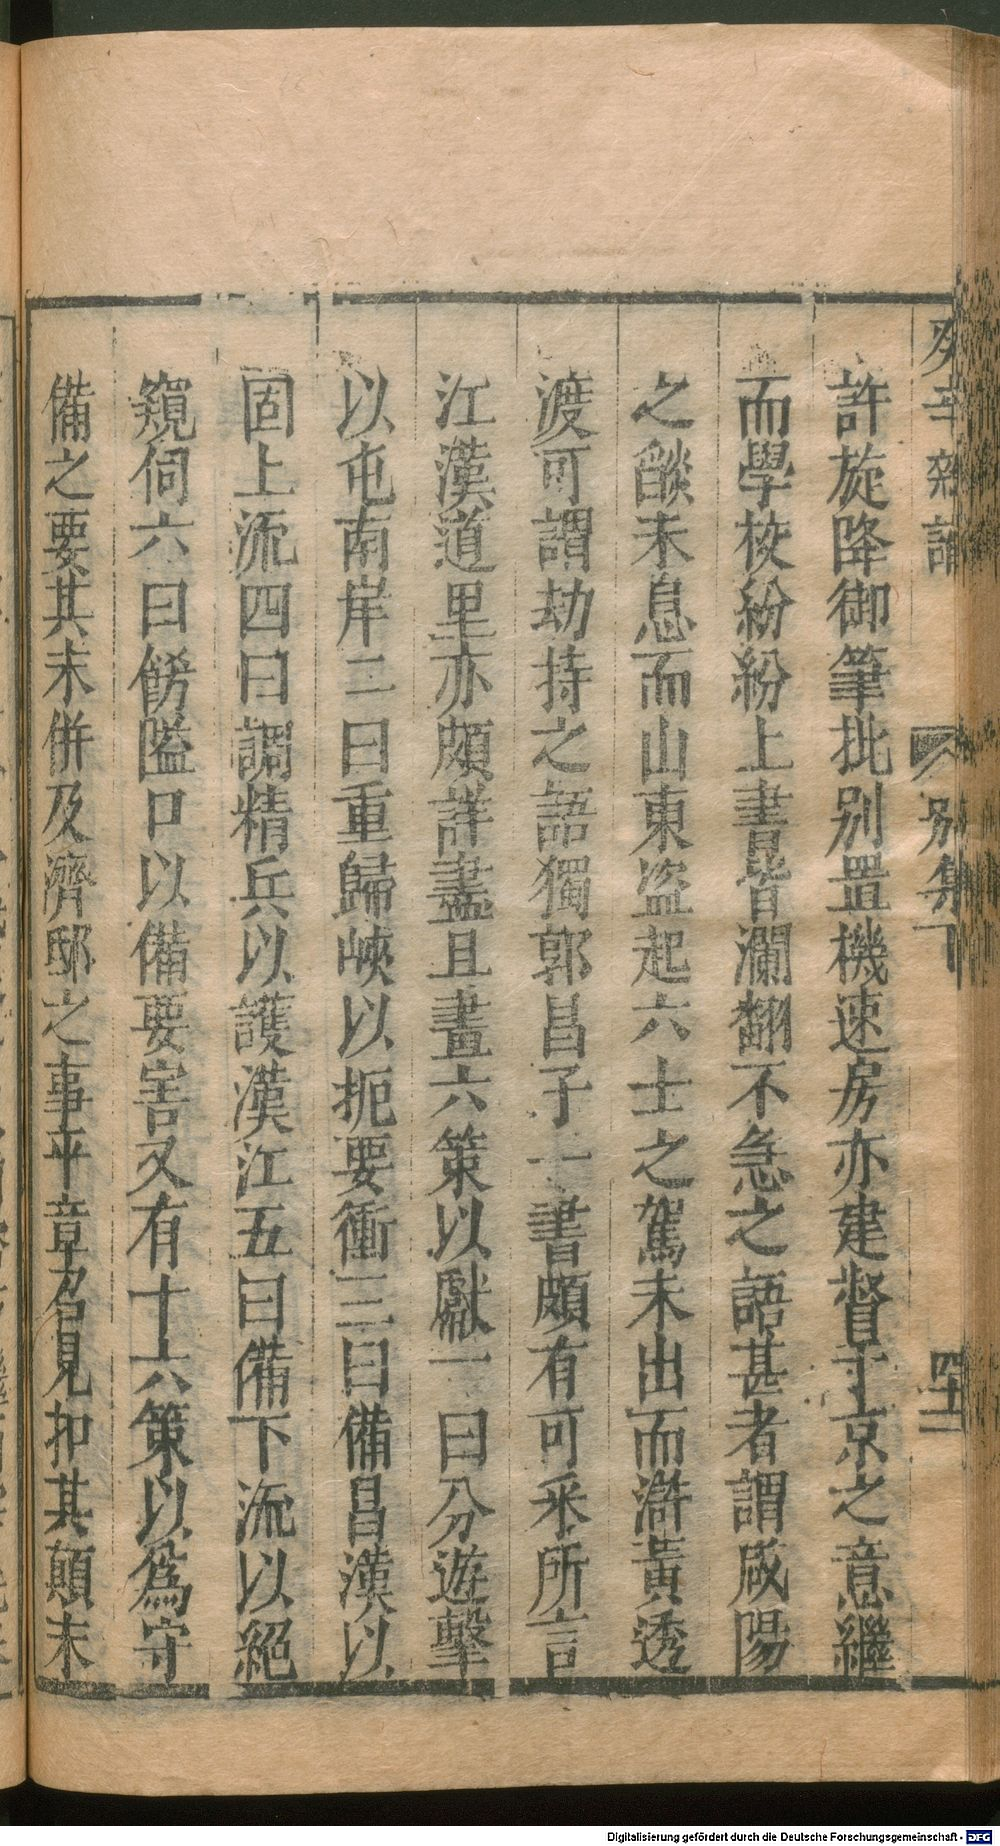 癸辛雜識 別集下 四十二
許旋降御筆批别置機速房亦建督于京之意繼
而學校紛紛上書皆瀾翻不急之語甚者謂咸陽
之燄未息而山東盗起六士之駕未出而滸黃透
渡可謂劫持之語獨郭昌子一書頗有可采所言
江漢道里亦頗詳盡且畫六策以獻一曰分遊擊
以屯南岸二曰重歸峽以扼要衝三曰備昌漢以
固上流四曰調精兵以護漢江五曰備下流以絕
窺伺六曰飭隘口以備要害又有十六策以為守
備之要其未併及濟邸之事平章召見扣其顛末
Digitalisierung gefördert durch die Deutsche Forschungsgemeinschaft - DFG